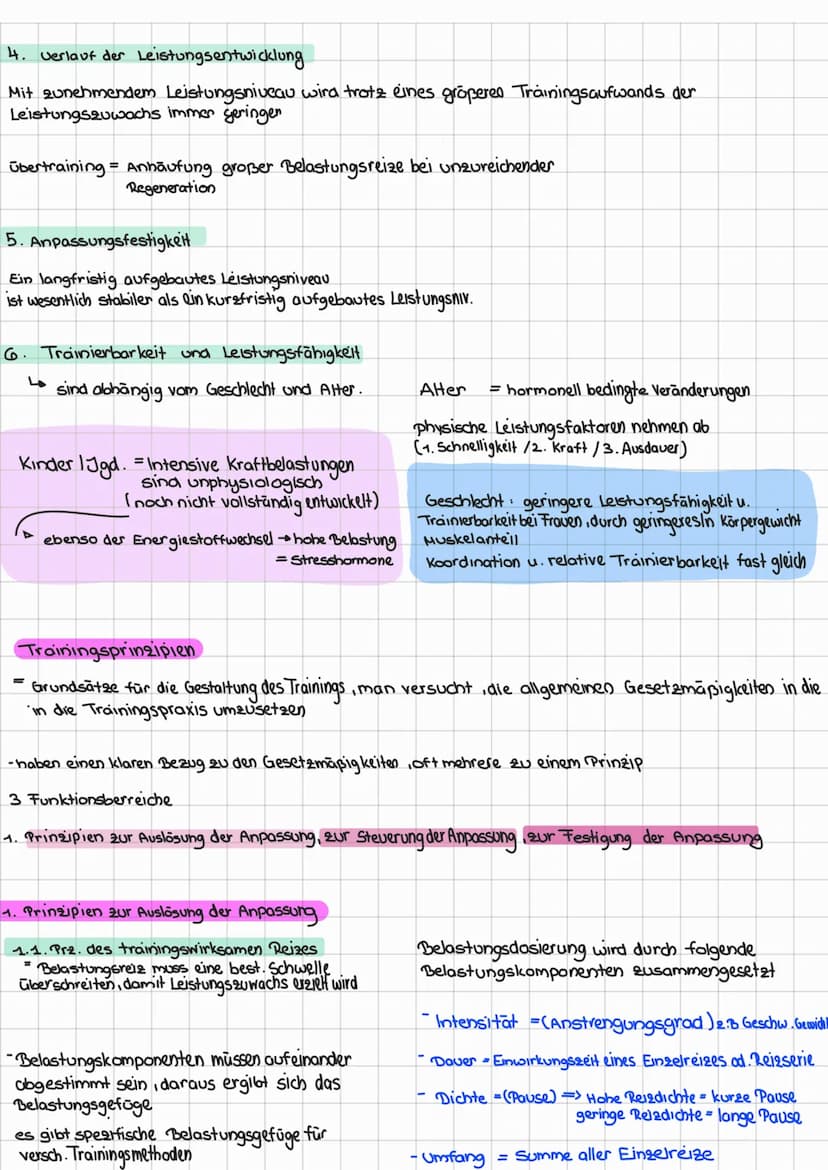 4. Verlauf der Leistungsentwicklung
Mit zunehmendem Leistungsniveau wird trotz eines größeren Trainingsaufwands der
Leistungszuwachs immer geringen
Übertraining = Anhäufung großer Belastungsreize bei unzureichender
Regeneration
5. Anpassungsfestigkeit
Ein langfristig aufgebautes Leistungsniveau
ist wesentlich stabiler als ein kurzfristig aufgebautes Leistungsniv.
6. Trainierbarkeit und Leistungsfähigkeit
↳ sind abhängig vom Geschlecht und Alter.
Kinder / Jgd. = Intensive Kraftbelastungen
sind unphysiologisch
(noch nicht vollständig entwickelt)
ebenso der Energiestoffwechsel → hohe Belastung
= Stresshormone
Alter = hormonell bedingte Veränderungen
physische Leistungsfaktoren nehmen ab
(1. Schnelligkeit / 2. Kraft / 3. Ausdauer)
Geschlecht: geringere Leistungsfähigkeit u.
Trainierbarkeit bei Frauen, durch geringeresln Körpergewicht
Muskelanteil
Koordination u. relative Trainierbarkeit fast gleich
Trainingsprinzipien
= Grundsätze für die Gestaltung des Trainings, man versucht, die allgemeinen Gesetzmäßigkeiten in die
in die Trainingspraxis umzusetzen
- haben einen klaren Bezug zu den Gesetzmäßigkeiten, oft mehrere zu einem Prinzip
3 Funktionsberreiche
1. Prinzipien zur Auslösung der Anpassung, zur Steuerung der Anpassung, zur Festigung der Anpassung
1. Prinzipien zur Auslösung der Anpassung
1.1. Prz. des trainingswirksamen Reizes
= Belastungsreiz muss eine best. Schwelle
überschreiten, damit Leistungszuwachs erzielt wird
- Belastungskomponenten müssen aufeinander
abgestimmt sein, daraus ergibt sich das
Belastungsgefüge
es gibt spezifische Belastungsgefüge für
versch. Trainingsmethoden
Belastungsdosierung wird durch folgende
Belastungskomponenten zusammengesetzt
- Intensität = (Anstrengungsgrad) z.B Geschw. Gewicht
- Dauer = Einwirkungszeit eines Einzelreizes od. Reizserie
- Dichte = (Pause) => Hohe Reizdichte = kurze Pause
geringe Reizdichte = lange Pause
- Umfang = Summe aller Einzelreize